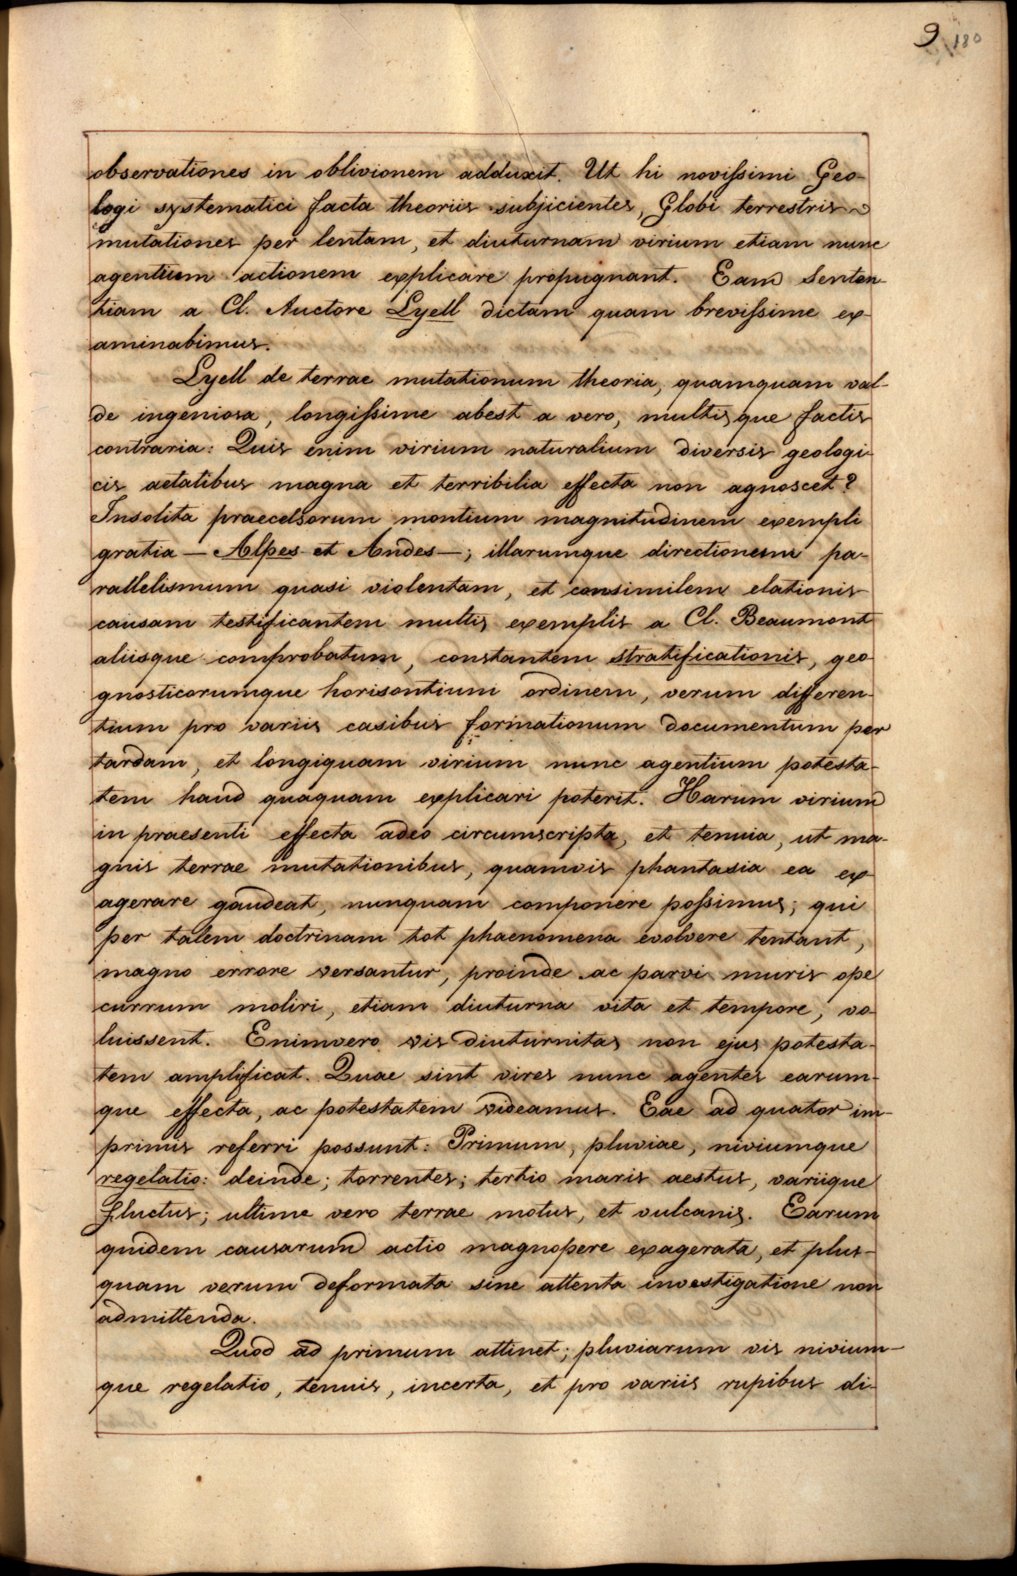 9 180
observationes in oblivionem adduxit. Ut hi novissimi Geo-
logi systematici facta theoriis subjicientes, Globi terrestris
mutationes per lentam, et diuturnam virium etiam nunc
agentium actionem explicare propugnant. Eam Senten-
tiam a Cl. Auctore Lyell dictam quam brevissime ex-
aminabimus.
Lyell de terrae mutationum theoria, quamquam val-
de ingeniosa, longissime abest a vero, multisque factis
contraria: Quis enim virium naturalium diversis geologi-
cis aetatibus magna et terribilia effecta non agnoscet?
Insolita praecelsorum montium magnitudinem exempli
gratia — Alpes et Andes —; illarumque directionem pa-
rallelismum quasi violentam, et consimilem elationis
causam testificantem multis exemplis a Cl. Beaumont
aliisque comprobatum, constantem stratificationis, geo-
gnosticorumque horisontium ordinem, verum differen-
tium pro variis casibus formationum documentum per
tardam, et longiquam virium nunc agentium potesta-
tem haud quaquam explicari poterit. Harum virium
in praesenti effecta adeo circumscripta, et tenuia, ut ma-
gnis terrae mutationibus, quamvis phantasia ea ex-
agerare gaudeat, nunquam componere possimus; qui
per talem doctrinam tot phaenomena evolvere tentant,
magno errore versantur, proinde ac parvi muris ope
currum moliri, etiam diuturna vita et tempore, vo-
luissent. Enimvero vis diuturnitas non ejus potesta-
tem amplificat. Quae sint vires nunc agentes earum-
que effecta, ac potestatem videamus. Eae ad quator im-
primis referri possunt: Primum, pluviae, niviumque
regelatio: deinde; torrentes; tertio maris aestus, variique
fluctus; ultime vero terrae motus, et vulcanis. Earum
quidem causarum actio magnopere exagerata, et plus-
quam verum deformata sine attenta investigatione non
admittenda.
Quod ad primum attinet; pluviarum vis nivium-
que regelatio, tenuis, incerta, et pro variis rupibus di-